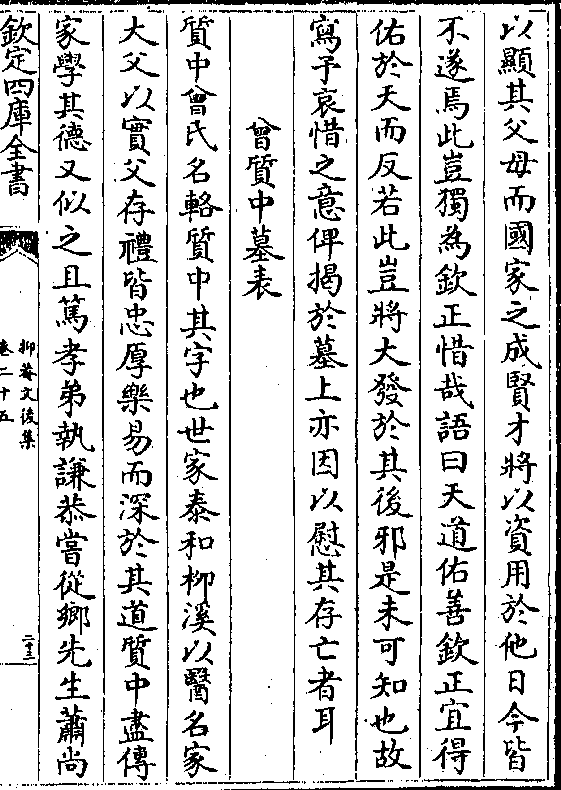 以顯其父母而國家之成賢才將以資用於他日今皆
不遂焉此豈獨為欽正惜哉語曰天道佑善欽正宜得
佑於天而反若此豈將大發於其後邪是未可知也故
寫予哀惜之意俾揭於墓上亦因以慰其存亡者耳
曾質中墓表
質中曾氏名輅質中其字也世家泰和柳溪以醫名家
大父以實父存禮皆忠厚樂易而深於其道質中盡傳
家學其德又似之且篤孝弟執謙恭嘗從鄉先生蕭尚
欽定四庫全書
抑菴文後集
卷二十五
二十三